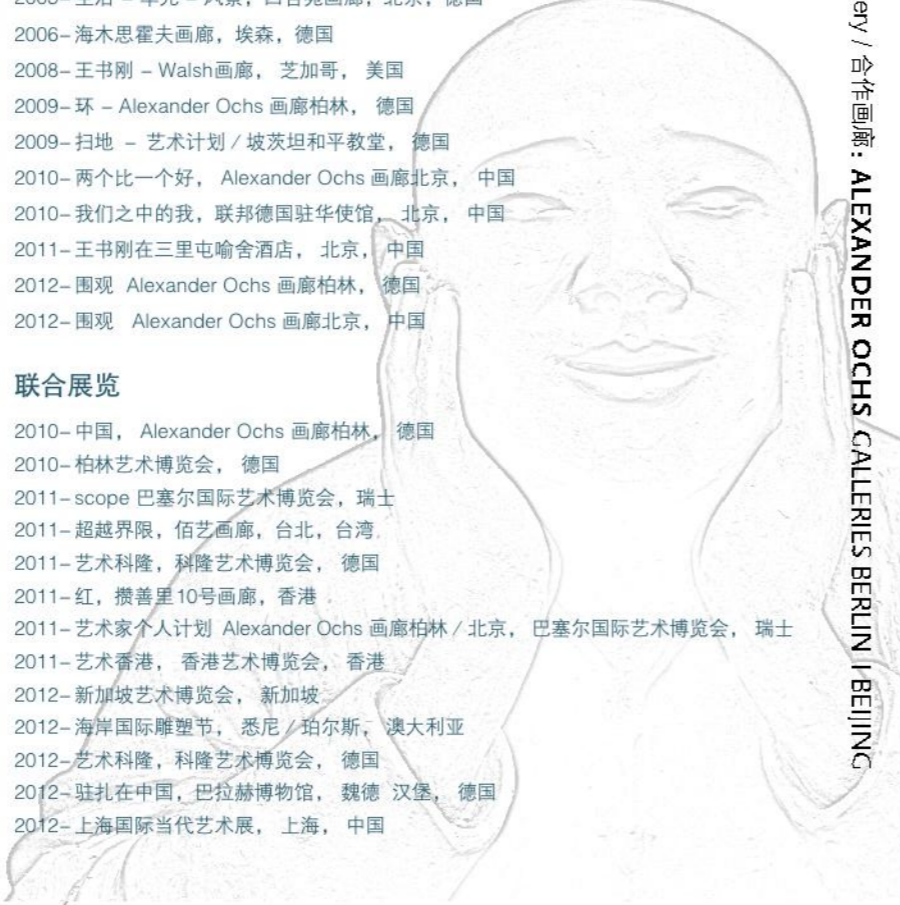 2006–海木思霍夫画廊，埃森，德国
2008–王书刚 – Walsh画廊， 芝加哥， 美国
2009–环 – Alexander Ochs 画廊柏林， 德国
2009–扫地 – 艺术计划 / 坡茨坦和平教堂， 德国
2010–两个比一个好， Alexander Ochs 画廊北京， 中国
2010–我们之中的我，联邦德国驻华使馆， 北京， 中国
2011–王书刚在三里屯喻舍酒店， 北京， 中国
2012–围观 Alexander Ochs 画廊柏林， 德国
2012–围观 Alexander Ochs 画廊北京， 中国
联合展览
2010–中国， Alexander Ochs 画廊柏林， 德国
2010–柏林艺术博览会， 德国
2011–scope 巴塞尔国际艺术博览会，瑞士
2011–超越界限，佰艺画廊，台北，台湾
2011–艺术科隆，科隆艺术博览会， 德国
2011–红，攒善里10号画廊，香港
2011–艺术家个人计划 Alexander Ochs 画廊柏林 / 北京， 巴塞尔国际艺术博览会， 瑞士
2011–艺术香港， 香港艺术博览会， 香港
2012–新加坡艺术博览会， 新加坡
2012–海岸国际雕塑节， 悉尼 / 珀尔斯， 澳大利亚
2012–艺术科隆，科隆艺术博览会， 德国
2012–驻扎在中国，巴拉赫博物馆， 魏德 汉堡， 德国
2012–上海国际当代艺术展， 上海， 中国
ery / 合作画廊: ALEXANDER OCHS GALLERIES BERLIN | BEIJING